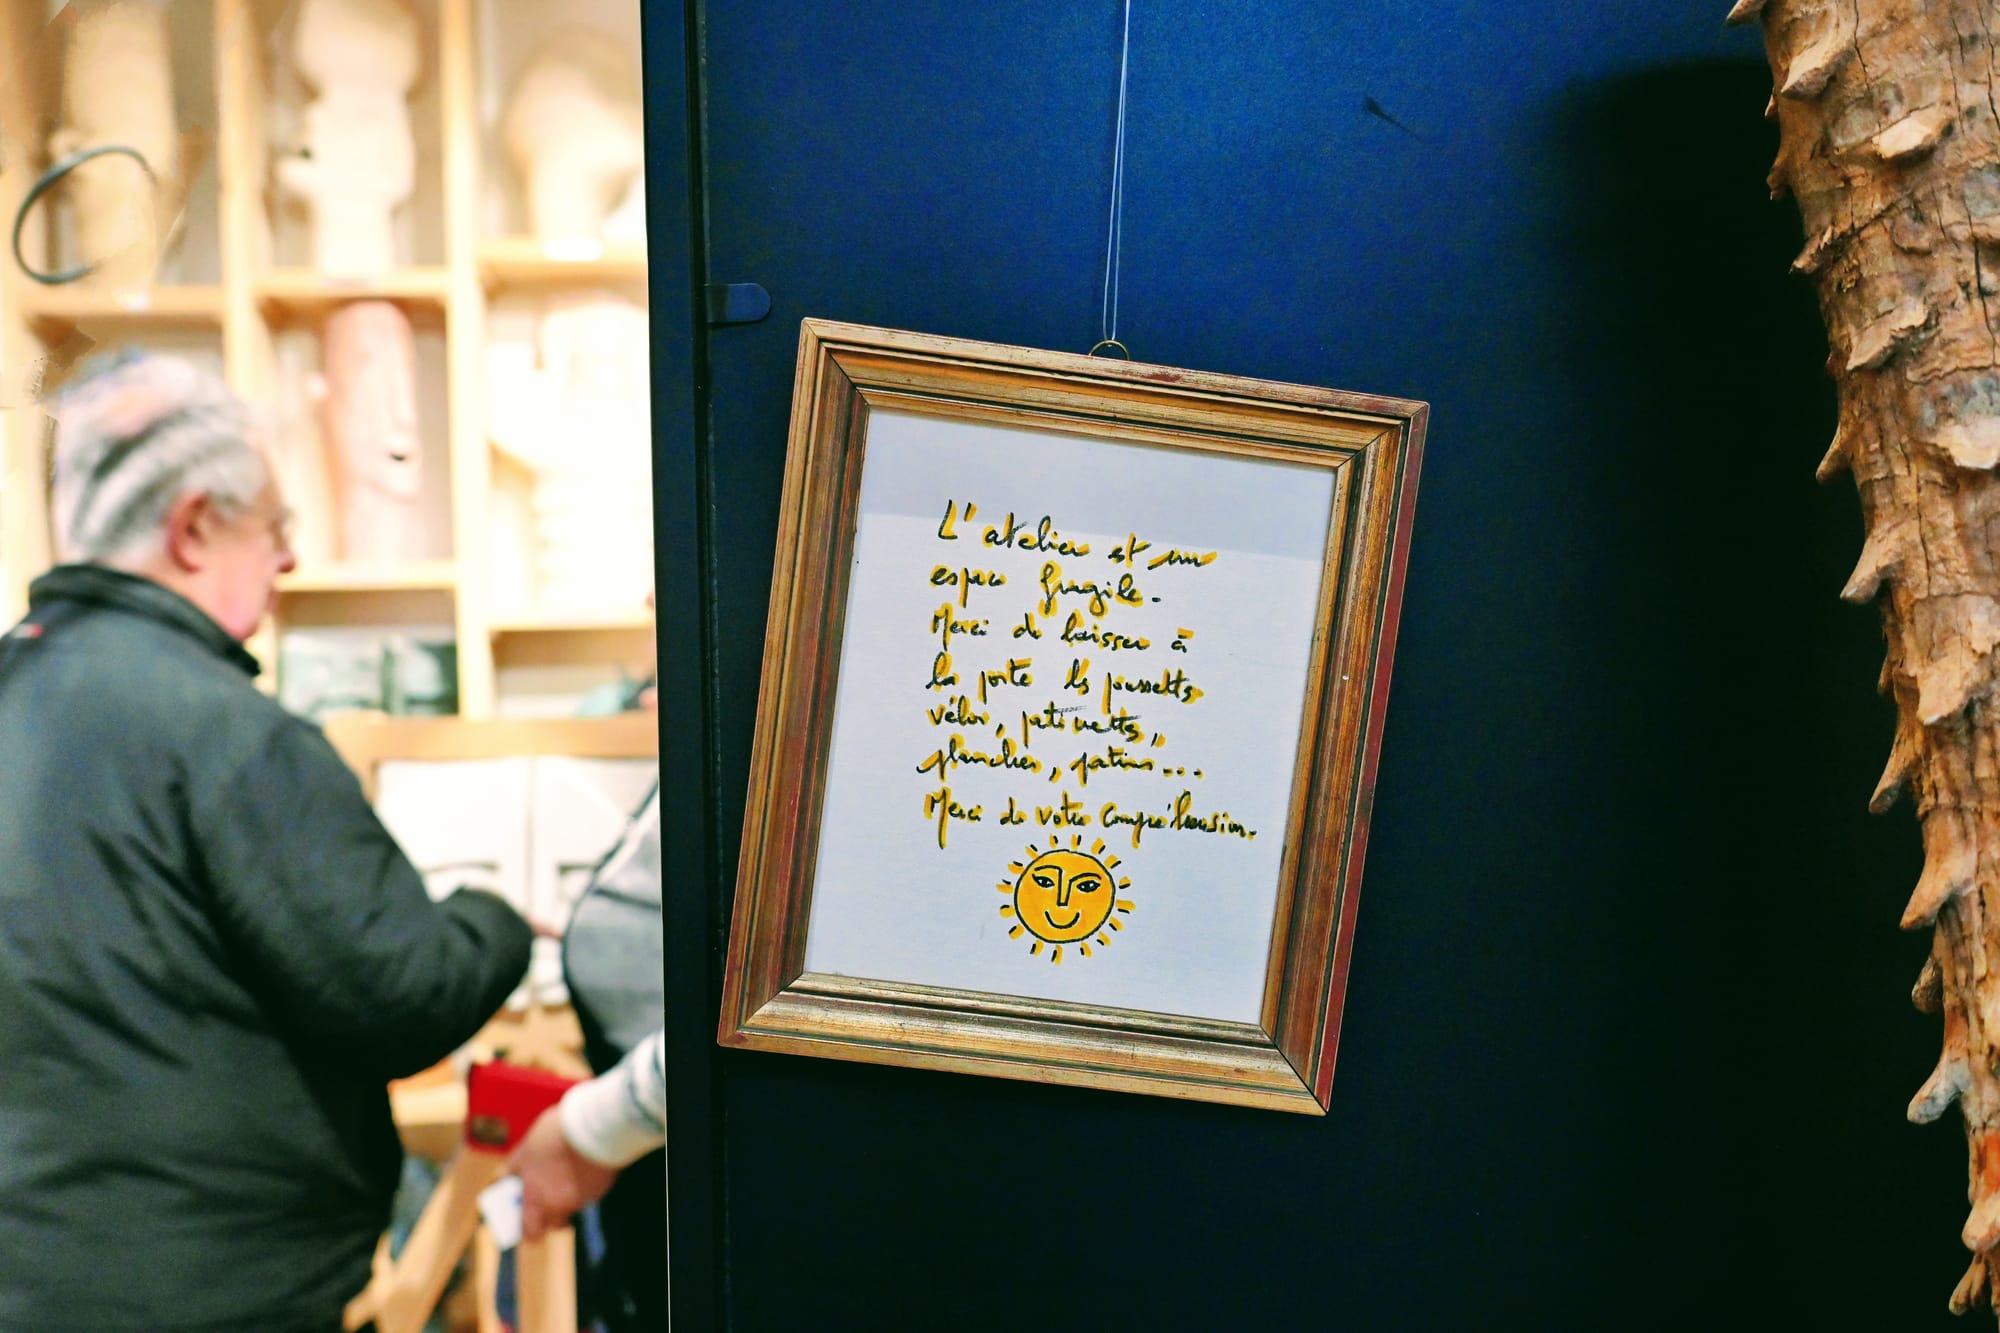 L'atelier est un
espace fragile.
Merci de laisser à
la porte les poussettes
vélos, patinettes,
planches, patins...
Merci de votre compréhension.